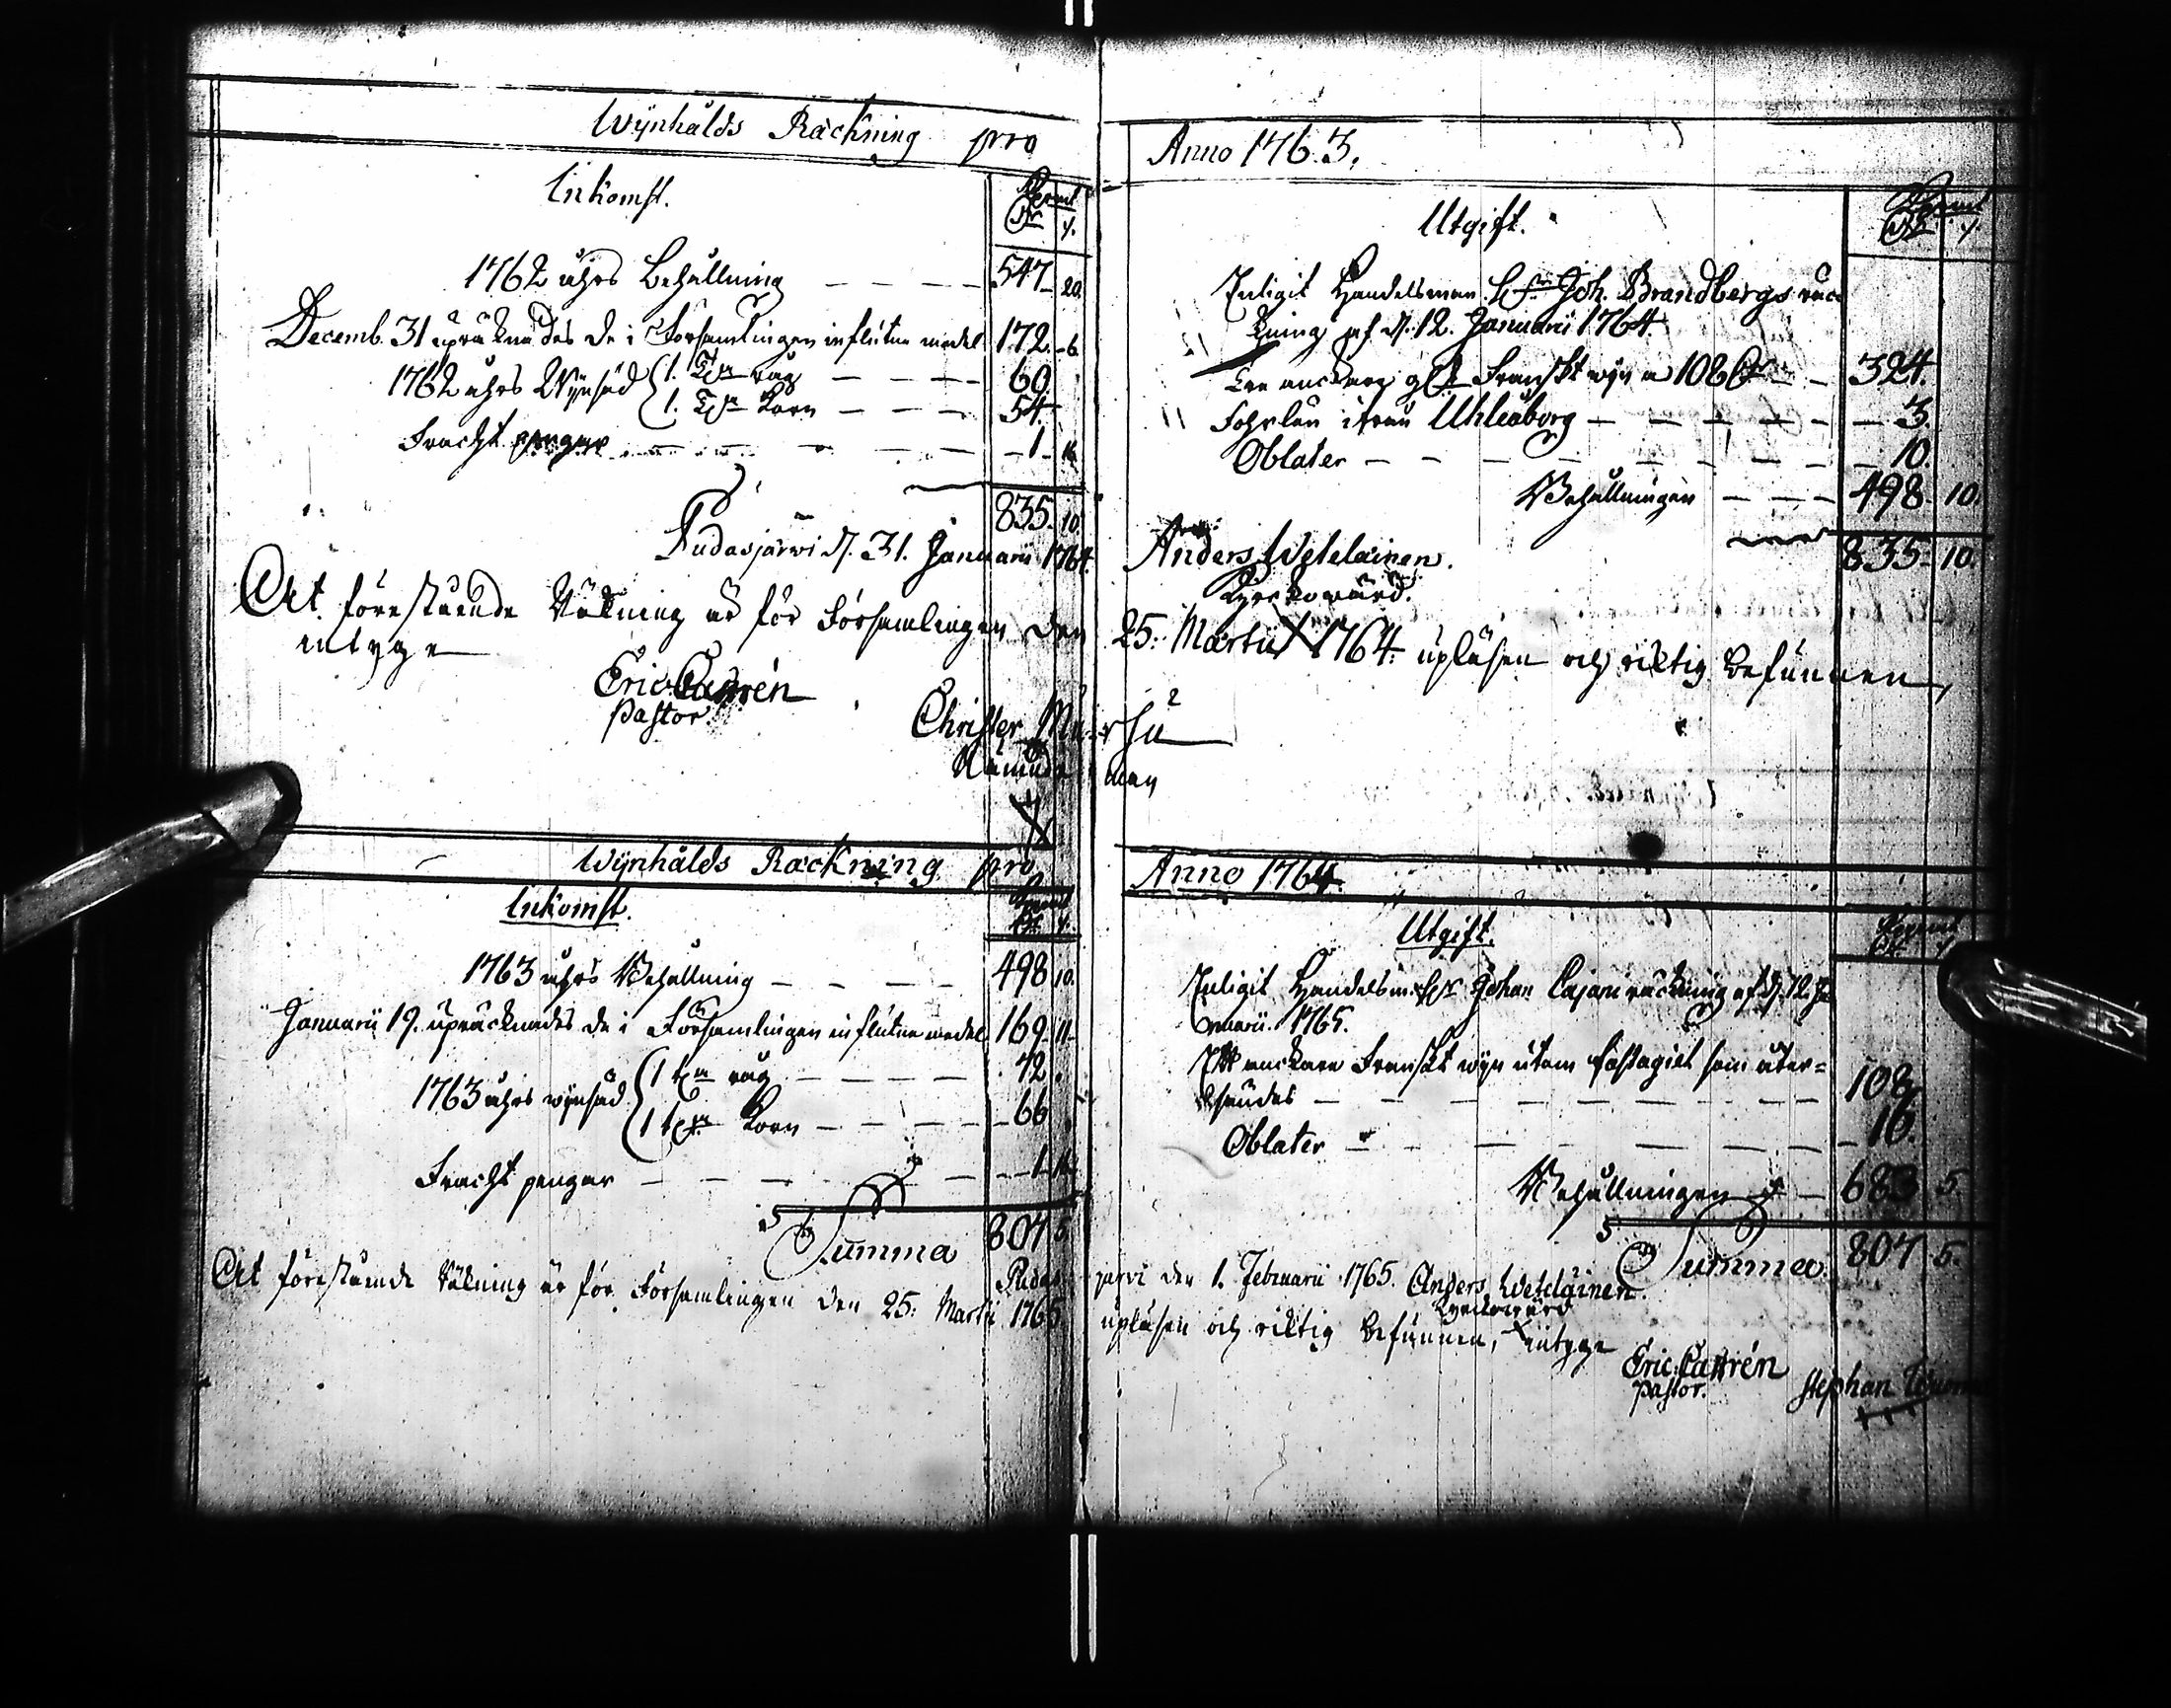 Wijnhålds Räckning pro
Inkomst.
1762 åhrs Behållning — — — — 547. 20.
Decemb. 31 upräknades de i Församlingen influtne medel 172. 6.
1762 åhrs Wijnsäd 1. T:na råg — — — — 60.
1. T:na Korn — — — — 54.
Fracht pengar — — — — 1. 16.
835. 10.
Pudasjärwi d. 31. Januarii 1764.
Anno 1763.
Utgift.
Enligit Handelsman H:r Joh. Brandbergs räck
ning af d. 12. Januarii 1764.
Tre anckare Franskt wijn a 108 — — 324.
ifrån Uhleåborg — — — — 3.
Oblater — — — — 10.
Behållningen — — — 498. 10.
835. 10.
Anders Wetelainen.
Kyrckowärd.
Att förestående Räkning är för Församlingen den 25. Martii 1764. upläsen och riktig befunnen,
intyga
Eric Castrén
Pastor.
Christer
Nämndeman
Wijnhålds Räckning pro
Inkomst.
1763 åhrs Behållning — — — — 498. 10.
Januarii 19. upräcknades de i Församlingen influtne medel 169. 11.
1763 åhrs wijnsäd 1 t:na råg — — — — 72.
1 t:na Korn — — — — 66.
Fracht pengar — — — — 1. 16.
Summa 807. 5.
Anno 1764.
Utgift.
Enligit Handelsm. H:r Johan Cajani räckning af d. 12. Ja
nuarii. 1765.
Ett anckare Franskt wijn utom fastagiet som åter-
sändes — — — — 108.
Oblater — — — — 16.
Behållningen — 683. 5.
Summa. 807. 5.
Pudasjärvi den 1. Februarii 1765. Anders Weteläinen.
Kyrckowärd
Att förestående Räkning är för Församlingen den 25. Martii 1765. upläsen och riktig befunnen, intyga
Eric Castrén
Pastor.
Stephan